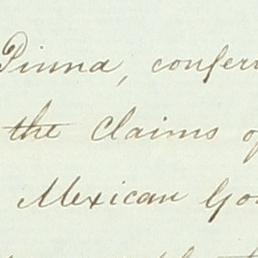 Pinna, confer
the claims of
Mexican Go